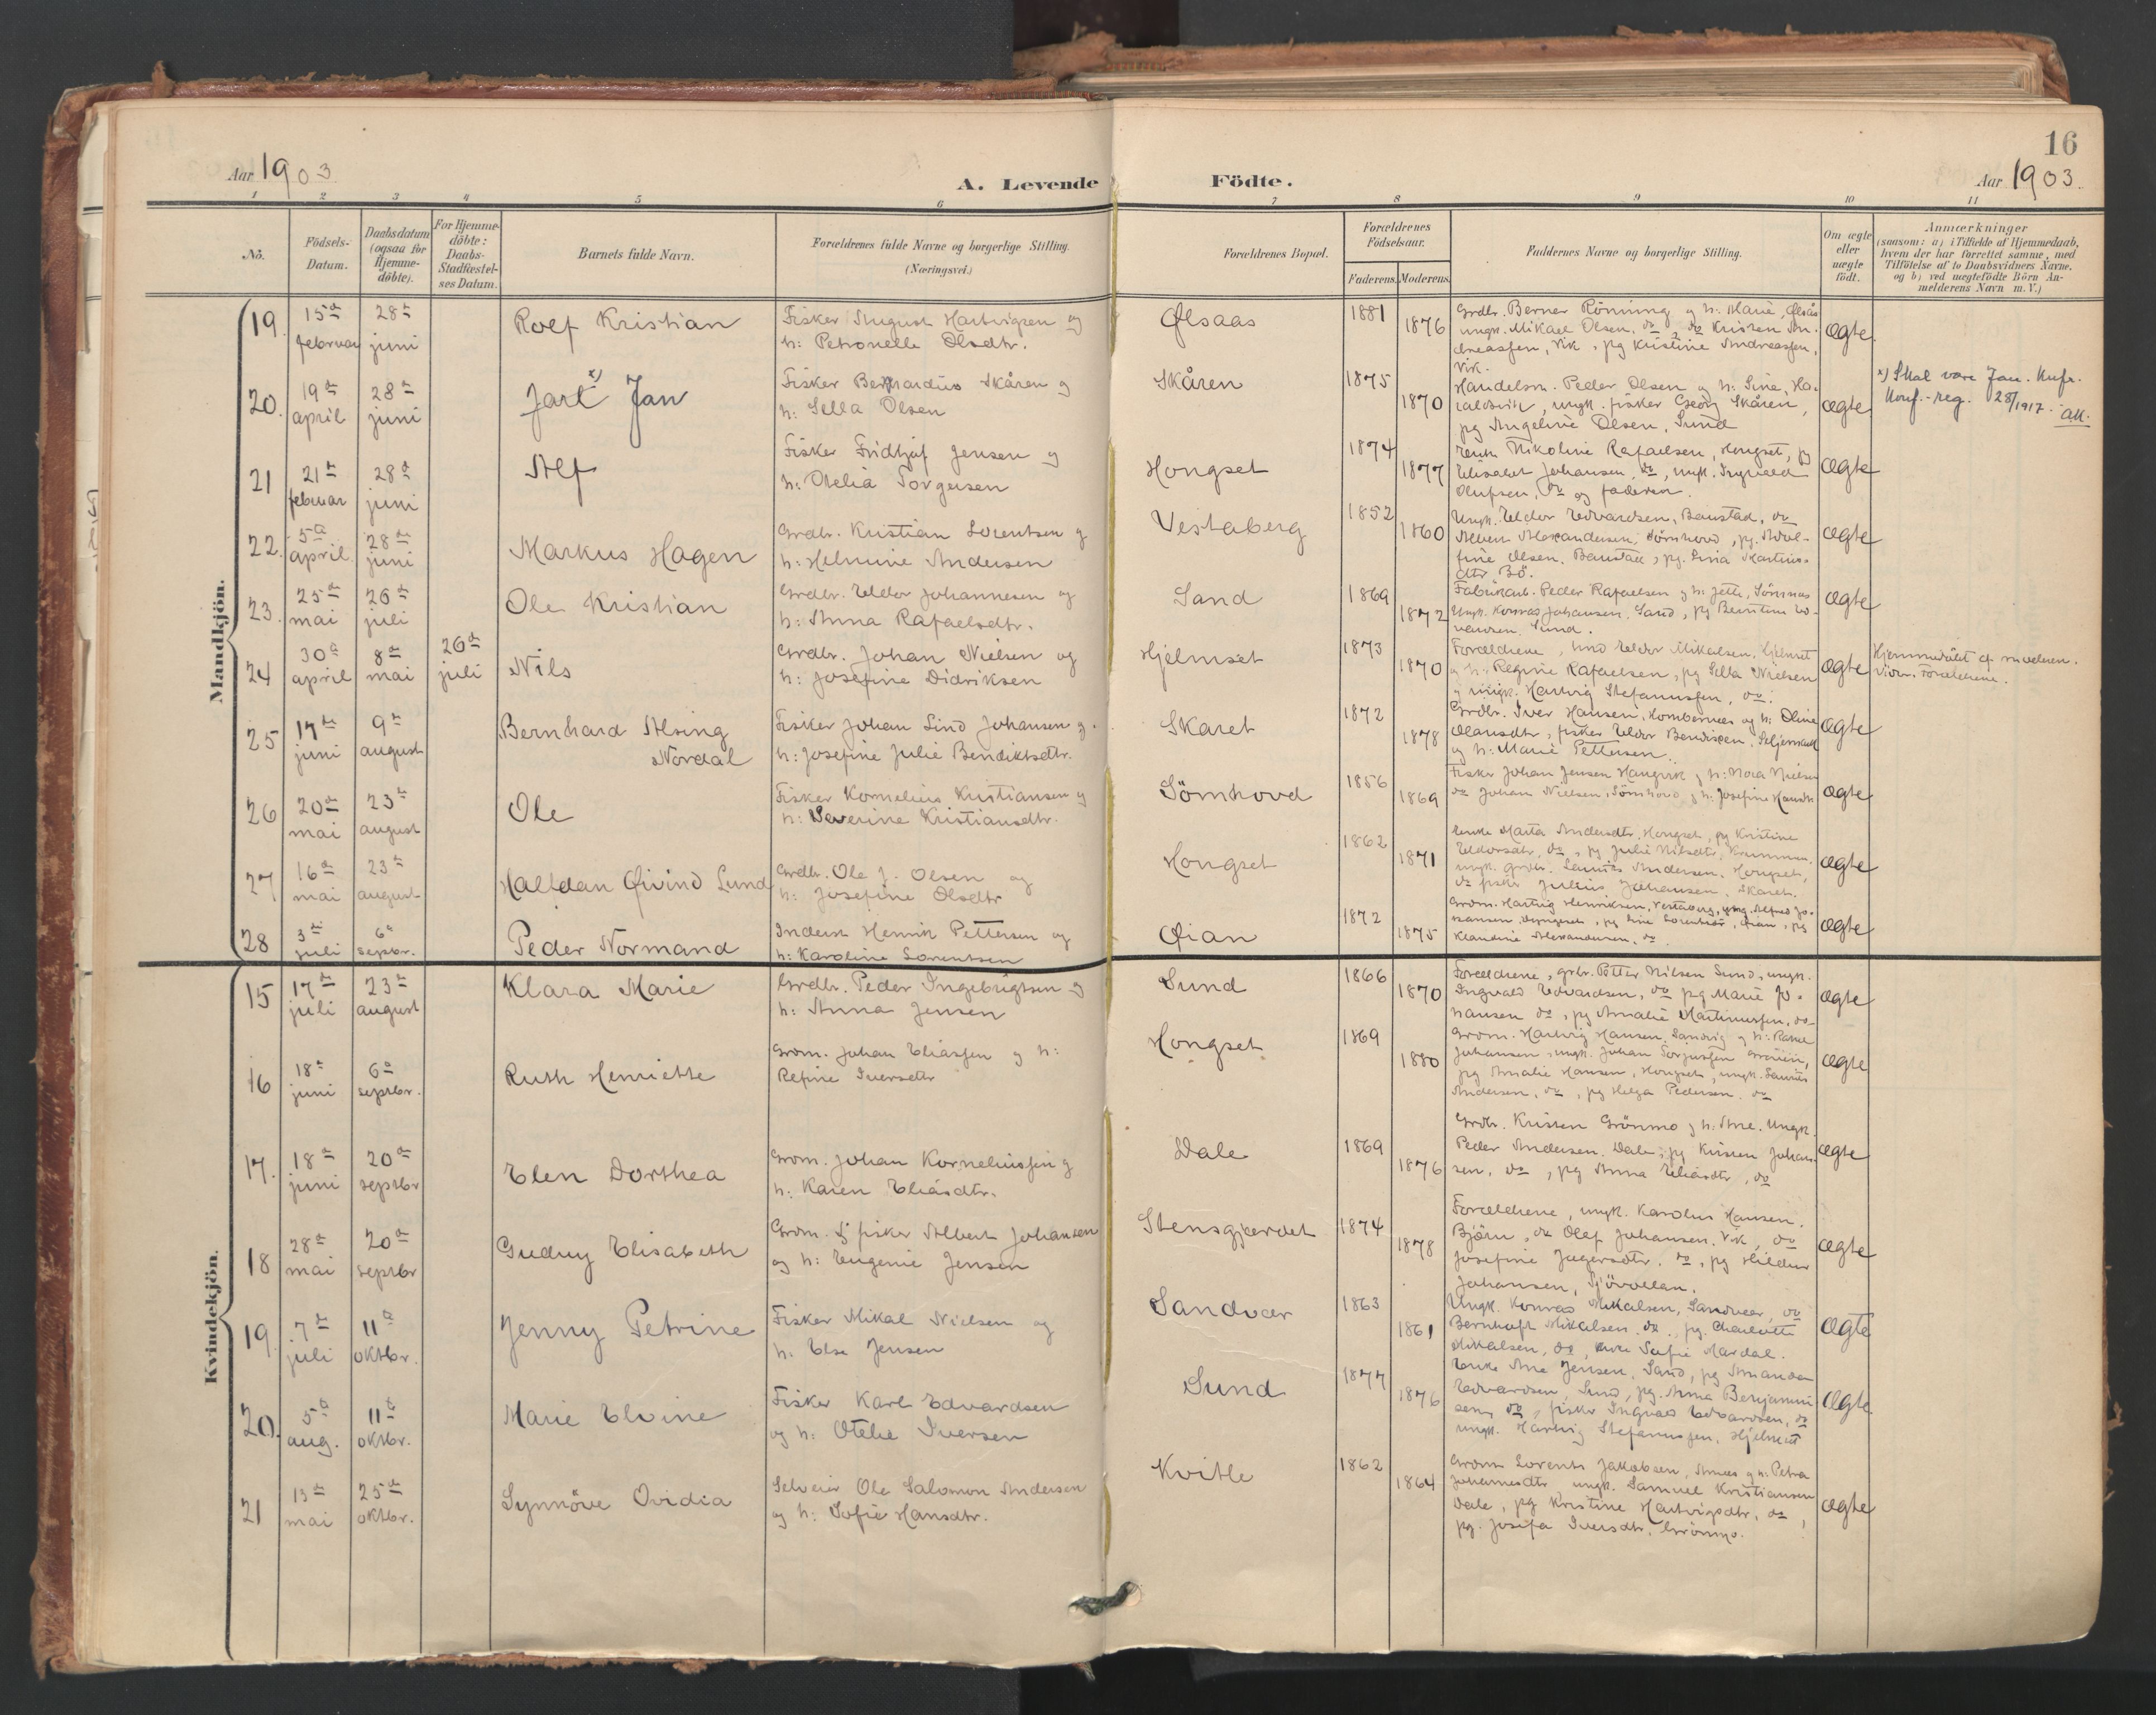 16
Aar 1903 A. Levende Födte. Aar 1903.
1 2 3 4 5 6 7 8 9 10 11
No. Födsels-Datum. Daabsdatum (ogsaa for Hjemme-döbte). For Hjemme-döbte: Daabs-Stadfæstel-ses Datum. Barnets fulde Navn. Forældrenes fulde Navne og borgerlige Stilling. (Næringsvei.) Forældrenes Bopæl. Forældrenes Födselsaar. Faderens. Moderens. Faddernes Navne og borgerlige Stilling. Om ægte eller uægte födt. Anmærkninger (saasom: a) i Tilfælde af Hjemmedaab, hvem der har forrettet samme, med Tilföielse af to Daabsvidners Navne, og b) ved uægtefödte Börn An-melderens Navn m. V.)
Mandkjön.
19. 15de februar 28de juni Rolf Kristian Fisker August Hartvigsen og
h: Petronelle Olsdtr. Ølsaas 1881 1876 Grdbr. Berner Rönning og h: Marie, Ølsås
ungk. Mikael Olsen, do, do Kristen An-
dreassen, Vik, pg Kristine Andreassen,
Vik. ægte
20. 19de april 28de juni Jarl x) Jan Fisker Bernhardius Skåren og
h: Sella Olsen Skåren 1875 1870 Handelsm. Peder Olsen og h: Sina,
ungk. fisker Georg Skåren,
pg Angeline Olsen, Sund ægte x) Skal være Jan.
Konf.-reg. 28/ 1917. AK.
21 21de februar 28de juni Alf Fisker Fridtjof Jensen og
h: Otelia Torgersen Hongset 1874 1877 Enke Nikoline Rafaelsen, Hongset, pg
Elisabet Johansen, do, ungk. Ingvald
Olufsen, do og faderen. ægte
22. 5de april 28de juni Markus Hagen Grdbr. Kristian Lorentsen og
h: Helmine Andersen Vestaberg 1852 1860 Ungk. Eldor Edvardsen, Baustad, do
Albert Alexandersen, Sömhovd, pg. Adol-
fine Olsen, Baustad, pg. Lina Martinus-
dtr. Bö. ægte
23. 25de mai 26de juli Ole Kristian Grdbr. Eldor Johannesen og
h: Anna Rafaelsdtr. Sand 1869 1872 Fabrikarb. Peder Rafaelsen og h: Jette, Sömnes
Ungk. Konrad Johansen, Sand, pg Berntine Ed-
vardsen, Sund. ægte
24 30de april 8de mai 26de juli Nils Grdbr. Johan Nielsen og
h: Josefine Didriksen Hjelmset 1873 1870 Forældrene, Eldor Mikalsen, Hjelmset
og h: Regine Rafaelsen, pg Sella Nielsen
og ungk. Hartvig Stefanussen, do. ægte Hjemmedöbt af
Vidn. Forældrene.
25 17de juni 9de august Bernhard Alsing
Nordal Fisker Johan Lind Johansen og
h: Josefine Julie Bendiktsdtr. Skaret 1872 1878 Grdbr. Iver Hansen, Hombornes og h: Oline
Olausdtr, fisker Eldor Bendiksen,
og h: Marie Pettersen. ægte
26 20de mai 23de august Ole Fisker Kornelius Kristiansen og
h: Severine Kristiansdtr. Sömhovd 1856 1869 Fisker Johan Jensen Hangvik og h: Nora Nielsen
do Johan Nielsen, Sömhovd og h: Josefine ægte
27 16de mai 23de august Halfdan Øivind Lund Grdbr. Ole J. Olsen og
h: Josefine Olsdtr Hongset 1862 1871 Enke Marta Andersdtr, Hongset, pg Kristine
Eldorsdtr, do, pg Julie Nilsdtr,
ungk. grdbr. Laurits Andersen, Hongset,
do fisker Julius Johansen, Skaret. ægte
28 3de juli 6te septbr. Peder Normand Inderst Henrik Pettersen og
h: Karoline Lorentsen Øian 1872 1875 Grdm. Hartvig Henriksen, Vestaberg, ungk. Alfred Jo-
hansen, pg Lina Lorentsdtr, Øian, pg
Klaudine Alexandersen, do. ægte
Kvindekjön.
15 17de juli 23de august Klara Marie Grdbr. Peder Ingebrigtsen og
h: Anna Jensen Sund 1866 1870 Forældrene, grbr. Petter Nilsen Sund, ungk.
Ingvald Edvardsen, do pg Marie Jo-
hansen do, pg Amalie Martinussen, do ægte
16 18de juni 6te septbr. Ruth Henriette Grdm. Johan Eliassen og h:
Regine Iversdtr Hongset 1869 1880 Grdm. Hartvig Hansen, Sandvig og h: Rakel
Johansen, ungk. Johan Torgersen
pg Amalie Hansen, Hongset, ungk. Laurits
Andersen, do, pg Helga Pedersen, do ægte
17. 18de juni 20de septbr Elen Dorthea Grdm. Johan Korneliussen og
h: Karen Eliasdtr. Dale 1869 1876 Grdbr. Kristen Grönmo og h: Ane. Ungk.
Peder Andersen, Dale, pg Kirsten Johan-
sen, do, pg Anna Eliasdtr, do ægte
18 28de mai 20de septbr Gudny Elisabeth Grdm. & fisker Albert Johansen
og h: Eugenie Jensen Stensgjærdet 1874 1878 Forældrene, ungk. Karolus Hansen,
Björn, do Olaf Johansen, Vik, do
Josefine Jagersdtr, do, pg Hildur
Johansen, Sjövollan. ægte
19. 7de juli 11te oktbr. Jenny Petrine Fisker Mikal Nielsen og
h: Else Jensen Sandvær 1863 1861 Ungk. Konrad Mikalsen, Sandvær, do
Bernhoft Mikalsen, do, pg. Charlotte
Mikalsen, do, enke Sofie Mardal. ægte
20. 5te aug. 11te oktbr. Marie Elvine Fisker Karl Edvardsen
og h: Otelie Iversen Sund 1877 1876 Enke Ane Jensen, Sand, pg Amanda
Edvardsen, Sund, pg. Anna Benjamin-
sen, do, fisker Ingvald Edvardsen, do
ungk. Hartvig Stefanussen, Hjelmset ægte
21 13de mai 25de oktbr. Synnöve Ovidia Selveier Ole Salomon Andersen
og h: Sofie Hansdtr. Kvitle 1862 1864 Grdm Lorents Jakobsen, og h: Petra
Johannesdtr, ungk. Samuel Kristiansen
Dale, pg Kristine Hartvigsdtr, do,
pg. Josefa Iversdtr, Grönmo. ægte